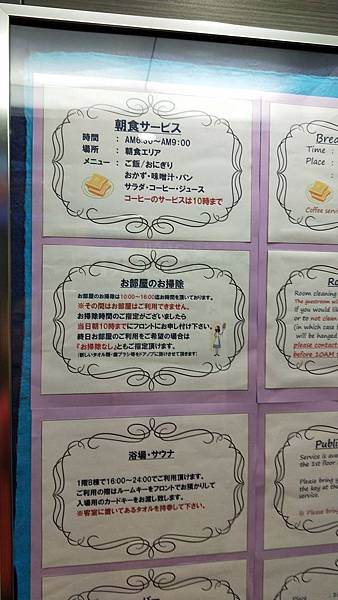 朝食サービス
時間 : AM6:30～AM9:00
場所 : 朝食エリア
メニュー : ご飯/おにぎり
おかず・味噌汁・パン
サラダ・コーヒー・ジュース
コーヒーのサービスは10時まで
Brea
Time :
Place :
Coffee servi
お部屋のお掃除
お部屋のお掃除は10:00～16:00迄お時間を頂いております。
※その間はお部屋はご利用できません。
お掃除時間のご指定がございましたら
当日朝10時までにフロントにお申し付け下さい。
終日お部屋のご利用をご希望の場合は
『お掃除なし』ともご指定頂けます。
(新しいタオル類・歯ブラシ等をドアノブに掛けさせて頂きます)
Ro
Room cleaning
The guestroom wi
If you would like
or to not clean
(in which case
will be hanged
please contact
before 10AM
浴場・サウナ
1階B棟で16:00～24:00でご利用頂けます。
ご利用の際はルームキーをフロントでお預かりして
入場用のカードキーをお渡し致します。
※客室に置いてあるタオルを持参して下さい。
Public
Service is ava
the 1st floor
Please bring y
the key at the
service.
※ Please Bring
バー